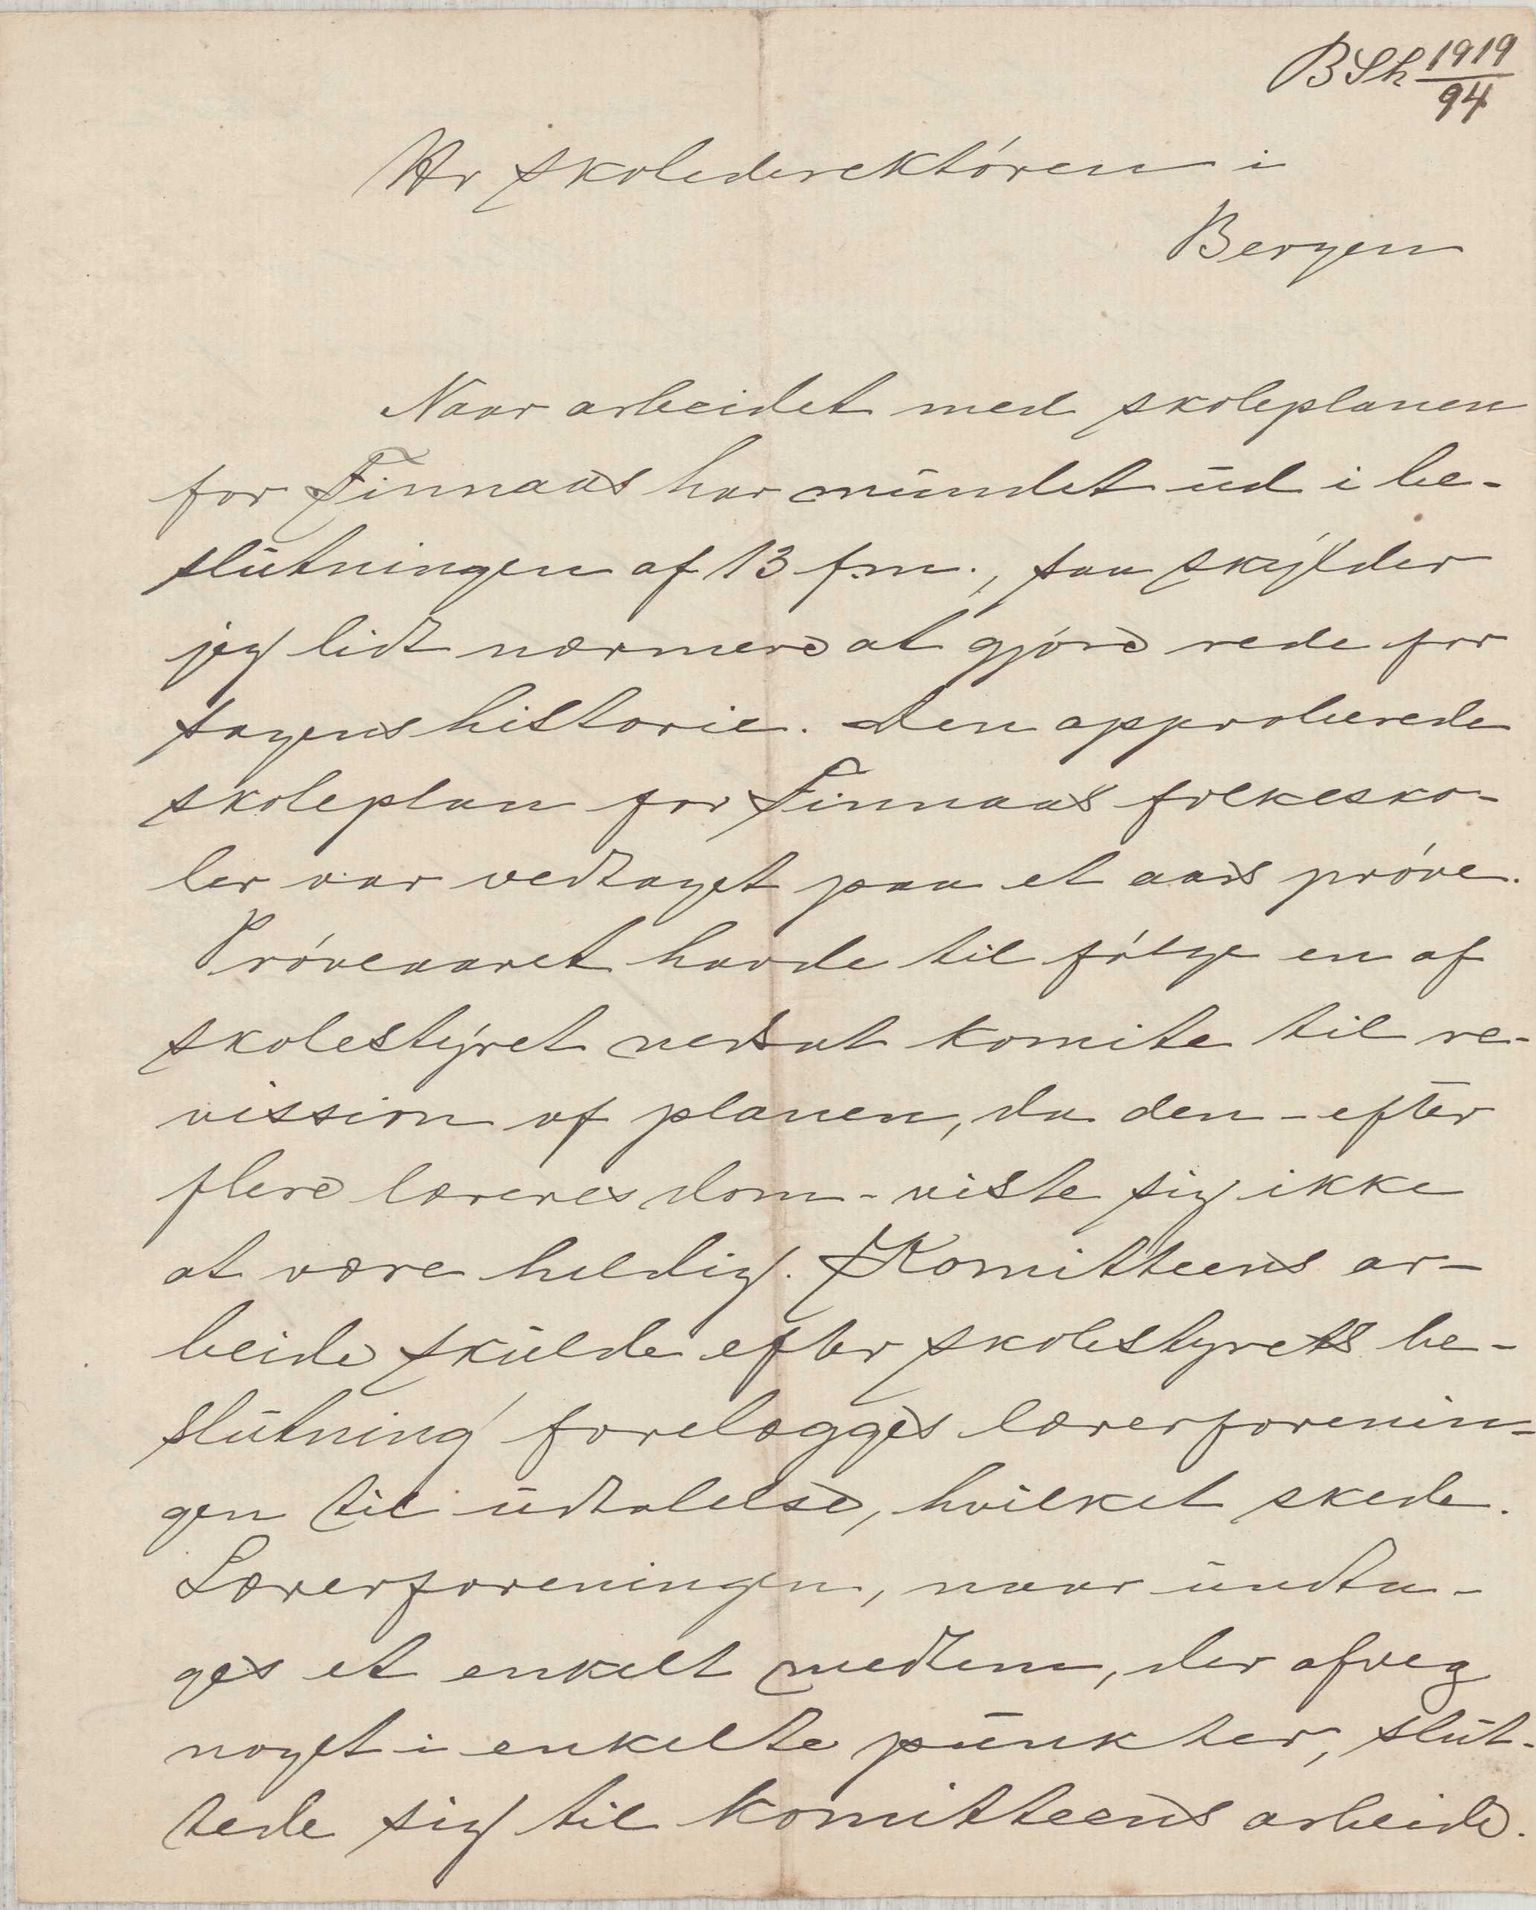 BSh 1919/94
Hr skoledirektören i
Bergen
Naar arbeidet med skoleplanen
for Finnaas har mundet ud i be-
slutningen af 13 f.m., saa skylder
jeg lidt nærmere at gjöre rede for
sagens historie. Den approberede
skoleplan for Finnaas folkesko-
ler var vedtaget paa et aars pröve.
Pröveaaret havde til fölge en af
skolestyret nedsat komite til re-
vission af planen, da den - efter
flere læreres dom - viste sig ikke
at være heldig. Komitteens ar-
beide skulde efter skolestyrets be-
slutning forelægges lærerforenin-
gen til udtalelse, hvilket skede.
Lærerforeningen, naar undta-
ges et enkelt medlem, der afveg
noget i enkelte punkter, slut-
tede sig til komitteens arbeide.